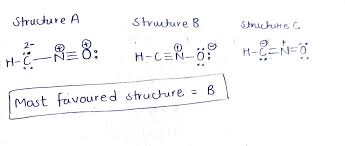 Structure A Structure B Structure C
2- ⊕ ⊕ ⊕ ⊖ ⊖ +
H-C̈-N≡O: H-C≡N-Ö: H-C̈=N=Ö
Most favoured structure = B